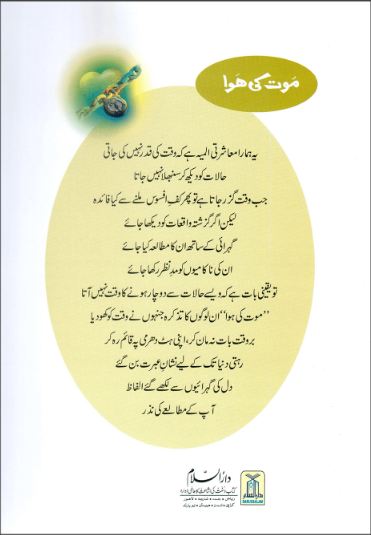 موت کی ہوا
یہ ہمارا معاشرتی المیہ ہے کہ وقت کی قدر نہیں کی جاتی
حالات کو دیکھ کر سنبھلا نہیں جاتا
جب وقت گزر جاتا ہے تو پھر کفِ افسوس ملنے سے کیا فائدہ
لیکن اگر گزشتہ واقعات کو دیکھا جائے
گہرائی کے ساتھ ان کا مطالعہ کیا جائے
ان کی ناکامیوں کو مدِ نظر رکھا جائے
تو یقینی بات ہے کہ ویسے حالات سے دوچار ہونے کا وقت نہیں آتا
”موت کی ہوا“ ان لوگوں کا تذکرہ جنہوں نے وقت کو کھو دیا
بر وقت بات نہ مان کر، اپنی ہٹ دھرمی پہ قائم رہ کر
رہتی دنیا تک کے لیے نشانِ عبرت بن گئے
دل کی گہرائیوں سے لکھے گئے الفاظ
آپ کے مطالعے کی نذر
دارالسلام
کتاب و سنت کی اشاعت کا عالمی ادارہ
دارالسلام
DARUSSALAM